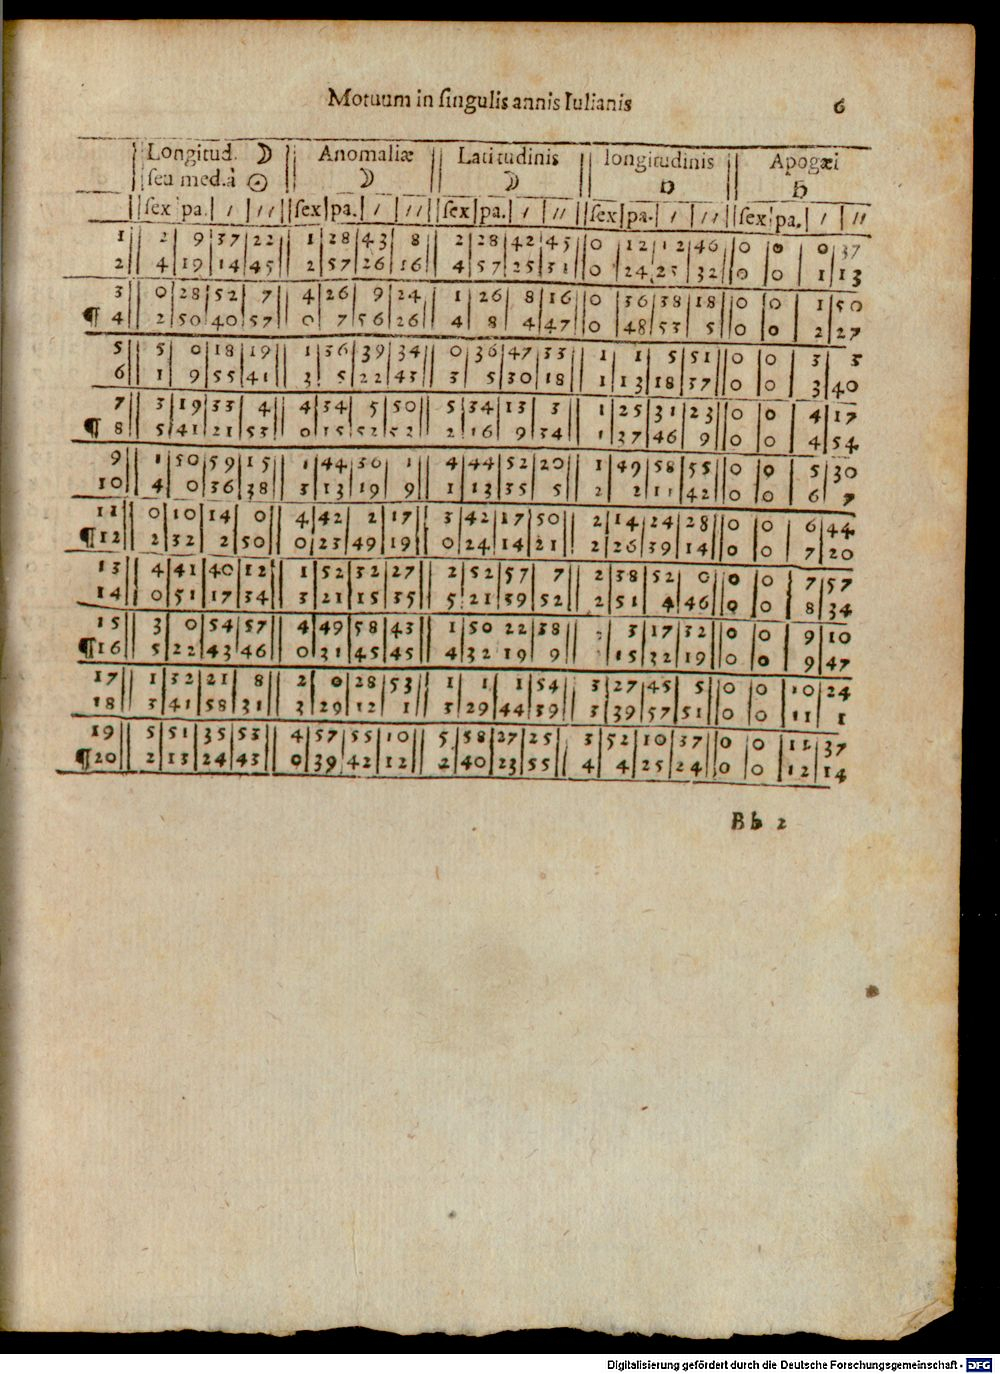 Motuum in singulis annis Iulianis 6
Longitud. ☽ Anomaliæ Latitudinis longitudinis Apogæi
seu med.à ☉ ☽ ☽ ♄ ♄
sex pa. / // sex pa. / // sex pa. / // sex pa. / // sex pa. / //
1 2 9 37 22 1 28 43 8 2 28 42 45 0 12 12 46 0 0 0 37
2 4 19 14 45 2 57 26 16 4 57 25 31 0 24 25 32 0 0 1 13
3 0 28 52 7 4 26 9 24 1 26 8 16 0 36 38 18 0 0 1 50
¶ 4 2 50 40 57 0 7 56 26 4 8 4 47 0 48 53 5 0 0 2 27
5 5 0 18 19 1 36 39 34 0 36 47 33 1 1 5 51 0 0 3 3
6 1 9 55 41 3 5 22 43 3 5 30 18 1 13 18 37 0 0 3 40
7 3 19 33 4 4 34 5 50 5 34 13 3 1 25 31 23 0 0 4 17
¶ 8 5 41 21 53 0 15 52 52 2 16 9 34 1 37 46 9 0 0 4 54
9 1 50 59 15 1 44 36 1 4 44 52 20 1 49 58 55 0 0 5 30
10 4 0 36 38 3 13 19 9 1 13 35 5 2 2 11 42 0 0 6 7
11 0 10 14 0 4 42 2 17 3 42 17 50 2 14 24 28 0 0 6 44
¶12 2 32 2 50 0 23 49 19 0 24 14 21 2 26 39 14 0 0 7 20
13 4 41 40 12 1 52 32 27 2 52 57 7 2 38 52 0 0 0 7 57
14 0 51 17 34 3 21 15 35 5 21 39 52 2 51 4 46 0 0 8 34
15 3 0 54 57 4 49 58 43 1 50 22 38 3 17 32 0 0 9 10
¶16 5 22 43 46 0 31 45 45 4 32 19 9 15 32 19 0 0 9 47
17 1 32 21 8 2 0 28 53 1 1 1 54 3 27 45 5 0 0 10 24
18 3 41 58 31 3 29 12 1 3 29 44 39 3 39 57 51 0 0 11 1
19 5 51 35 53 4 57 55 10 5 58 27 25 3 52 10 37 0 0 11 37
¶20 2 13 24 43 0 39 42 12 2 40 23 55 4 4 25 24 0 0 12 14
Bb 2
Digitalisierung gefördert durch die Deutsche Forschungsgemeinschaft - DFG